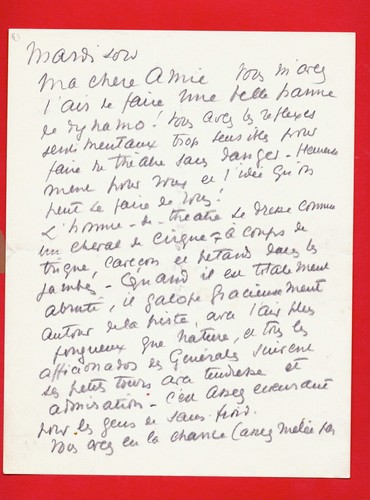 Mardi soir
Ma chère Amie vous m'avez
l'air de faire une belle panne
de dynamo! Vous avez les réflexes
sentimentaux trop sensibles pour
faire du théâtre sans danger - Heureuse
même pour vous et l'idée qu'on
peut se faire de vous!
L'homme - de - théâtre se dresse comme
un cheval de cirque à coups de
trique, caresses et pétards dans les
jambes - Quand il est totalement
abruti, il galope gracieusement
autour de la piste, avec l'air plus
fougueux que nature, et tous les
afficionados des Générales suivent
ses petits tours avec tendresse et
admiration - c'est assez écoeurant
pour les gens de sang-froid.
Vous avez eu la chance (assez mêlée